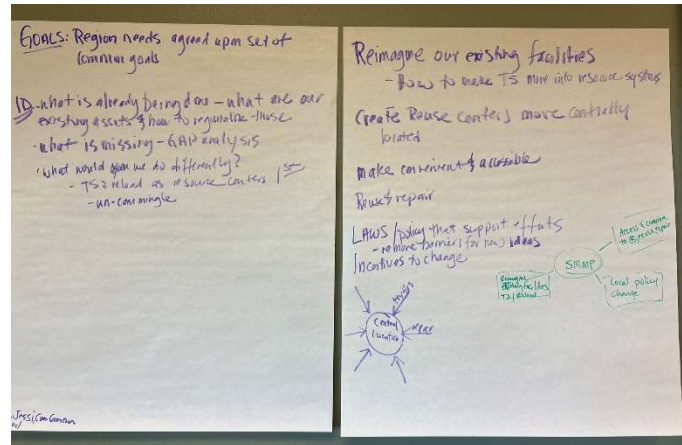 GOALS: Region needs agreed upon set of
common goals
ID - what is already being done - what are our
existing assets & how to regionalize those
· what is missing - GAP analysis
· what would we do differently?
- TS & reload as resource centers 1st
- un-commingle
Reimagine our existing facilities
- How to make TS more into resource systems
Create Reuse Centers more centrally
located
make convenient & accessible
Reuse & repair
LAWS/policy that support efforts
- remove barriers for new ideas
Incentives to change
Central
location
repair
SMMP
Access &
to reuse/repair
Reimagine
existing facilities
TS/Reload
Local policy
change